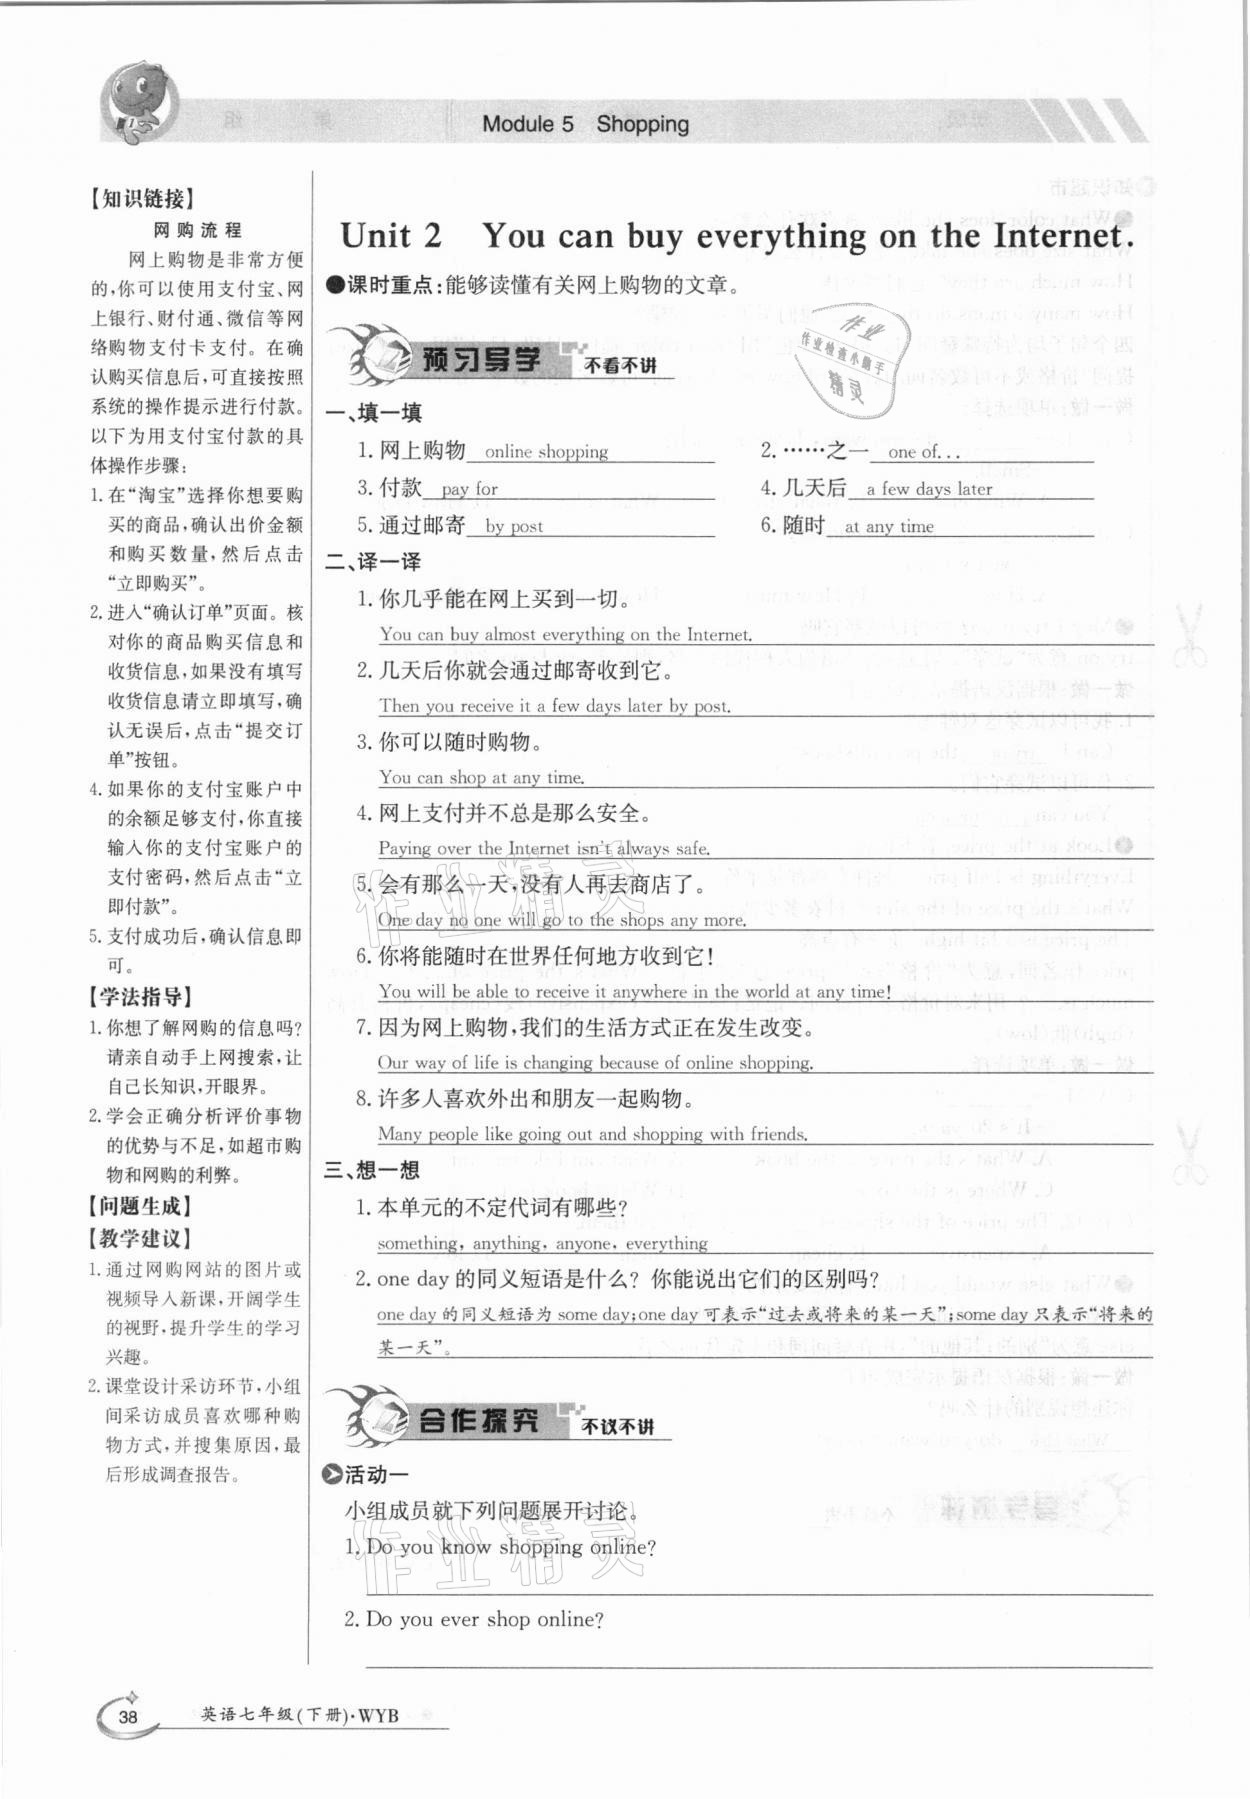 Module 5 Shopping
【知识链接】
网购流程
网上购物是非常方便
的,你可以使用支付宝、网
上银行、财付通、微信等网
络购物支付卡支付。在确
认购买信息后,可直接按照
系统的操作提示进行付款。
以下为用支付宝付款的具
体操作步骤:
1. 在“淘宝”选择你想要购
买的商品,确认出价金额
和购买数量,然后点击
“立即购买”。
2. 进入“确认订单”页面。核
对你的商品购买信息和
收货信息,如果没有填写
收货信息请立即填写,确
认无误后,点击“提交订
单”按钮。
4. 如果你的支付宝账户中
的余额足够支付,你直接
输入你的支付宝账户的
支付密码,然后点击“立
即付款”。
5. 支付成功后,确认信息即
可。
【学法指导】
1. 你想了解网购的信息吗?
请亲自动手上网搜索,让
自己长知识,开眼界。
2. 学会正确分析评价事物
的优势与不足,如超市购
物和网购的利弊。
【问题生成】
【教学建议】
1. 通过网购网站的图片或
视频导入新课,开阔学生
的视野,提升学生的学习
兴趣。
2. 课堂设计采访环节,小组
间采访成员喜欢哪种购
物方式,并搜集原因,最
后形成调查报告。
Unit 2 You can buy everything on the Internet.
●课时重点:能够读懂有关网上购物的文章。
预习导学 不看不讲
一、填一填
1. 网上购物 online shopping 2. ……之一 one of...
3. 付款 pay for 4. 几天后 a few days later
5. 通过邮寄 by post 6. 随时 at any time
二、译一译
1. 你几乎能在网上买到一切。
You can buy almost everything on the Internet.
2. 几天后你就会通过邮寄收到它。
Then you receive it a few days later by post.
3. 你可以随时购物。
You can shop at any time.
4. 网上支付并不总是那么安全。
Paying over the Internet isn't always safe.
5. 会有那么一天,没有人再去商店了。
One day no one will go to the shops any more.
6. 你将能随时在世界任何地方收到它!
You will be able to receive it anywhere in the world at any time!
7. 因为网上购物,我们的生活方式正在发生改变。
Our way of life is changing because of online shopping.
8. 许多人喜欢外出和朋友一起购物。
Many people like going out and shopping with friends.
三、想一想
1. 本单元的不定代词有哪些?
something, anything, anyone, everything
2. one day 的同义短语是什么? 你能说出它们的区别吗?
one day 的同义短语为 some day;one day 可表示“过去或将来的某一天”;some day 只表示“将来的
某一天”。
合作探究 不议不讲
活动一
小组成员就下列问题展开讨论。
1. Do you know shopping online?
2. Do you ever shop online?
38 英语七年级(下册)·WYB
作业
作业检查小助手
精灵
作业精灵
作业精灵